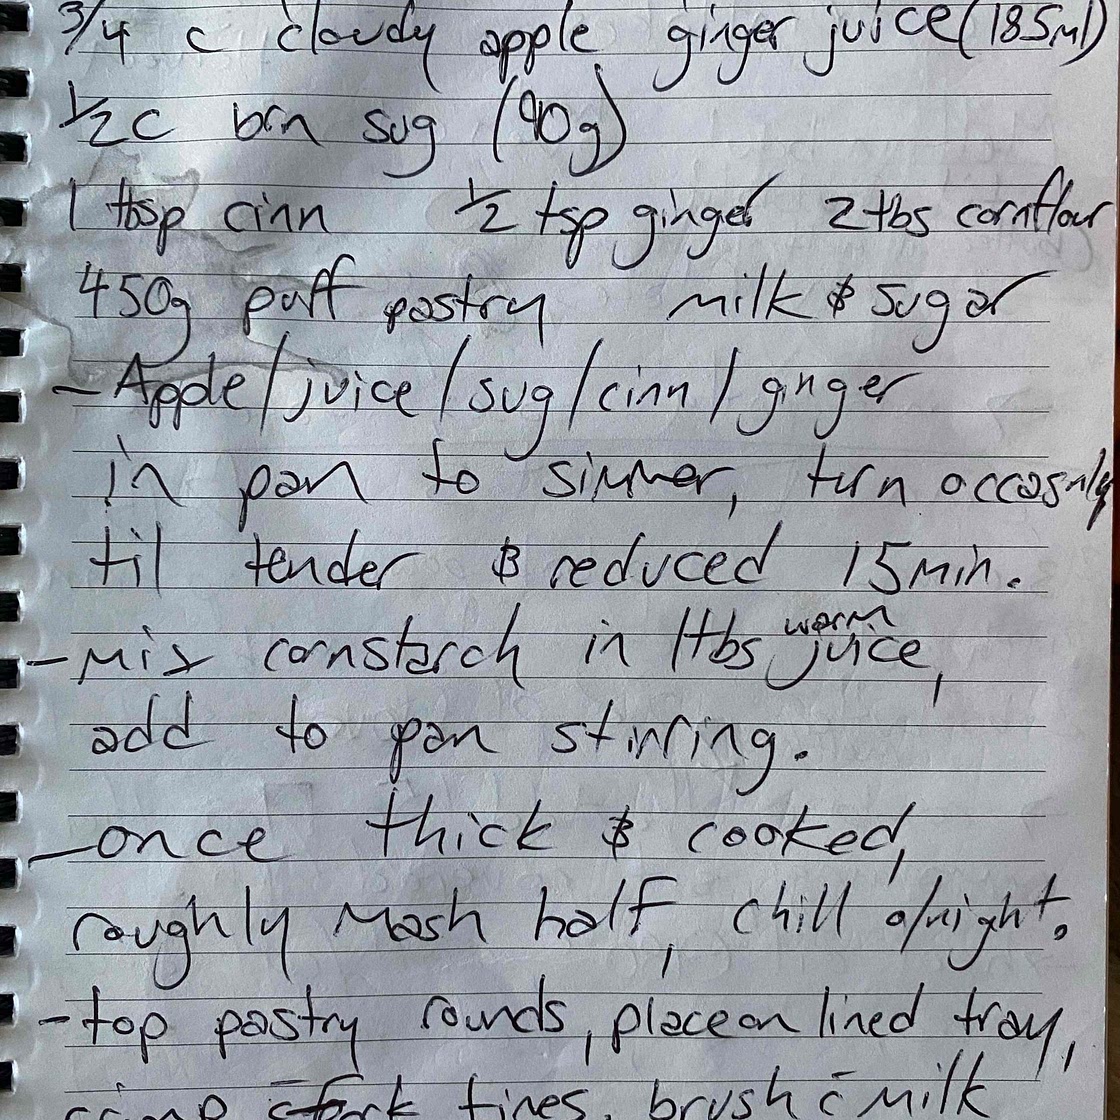 3/4 c cloudy apple ginger juice (185ml)
1/2 c brn sug (90g)
1 tbsp cinn 1/2 tsp ginger 2 tbs cornflour
450g puff pastry milk & sugar
- Apple/juice/sug/cinn/ginger
in pan to simmer, turn occasnly
til tender & reduced 15min.
- mix cornstarch in 1 tbs warm juice,
add to pan stirring.
- once thick & cooked,
roughly mash half, chill o/night.
- top pastry rounds, place on lined tray,
crimp c̄ fork tines, brush c̄ milk